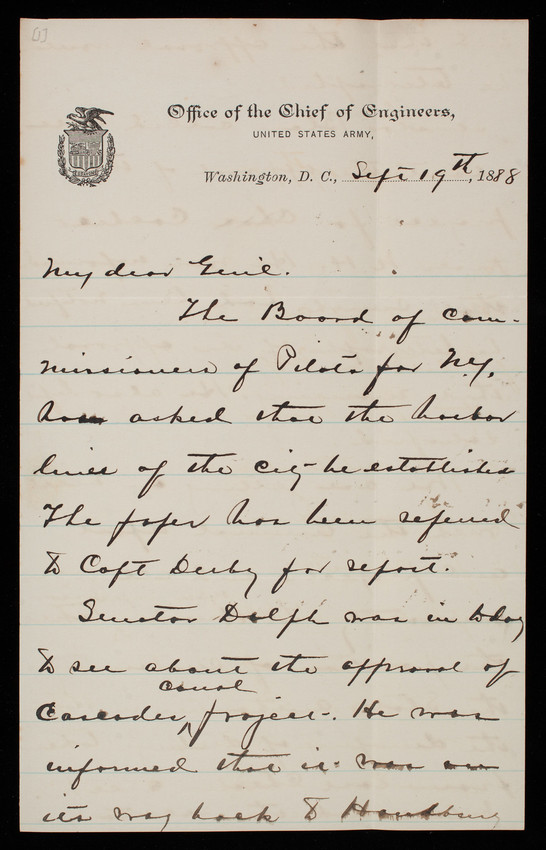 [1]
Office of the Chief of Engineers,
UNITED STATES ARMY,
Washington, D. C., Sept 19th, 1888
My dear Genl.
The Board of Com-
missioners of Pilots for N.Y.
has asked that the harbor
lines of the city be established
The paper has been referred
to Capt Derby for report.
Senator Dolph was in today
to see about the approval of
canal
Cascades ^ project. He was
informed that it was on
its way back to Handbury